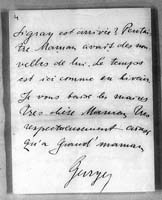 Sigray est arrivée? Peut
tre Maman avait des nou
velles de lui. Le temps
est ici comme en hiver
Je vous baise les mains
très chère Maman très
respectueusement ainsi
qu'à Grand maman
Georges